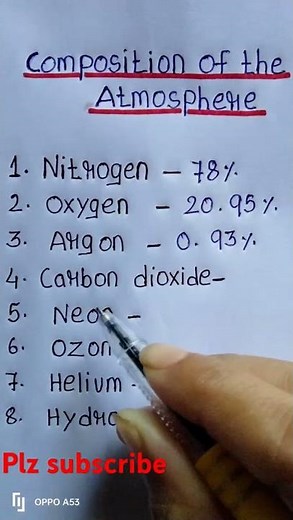 Composition of the
Atmosphere
1. Nitrogen – 78%
2. Oxygen – 20.95%
3. Argon – 0.93%
4. Carbon dioxide–
5. Neon –
6. Ozon
7. Helium -
8. Hydro
Plz subscribe
OPPO A53